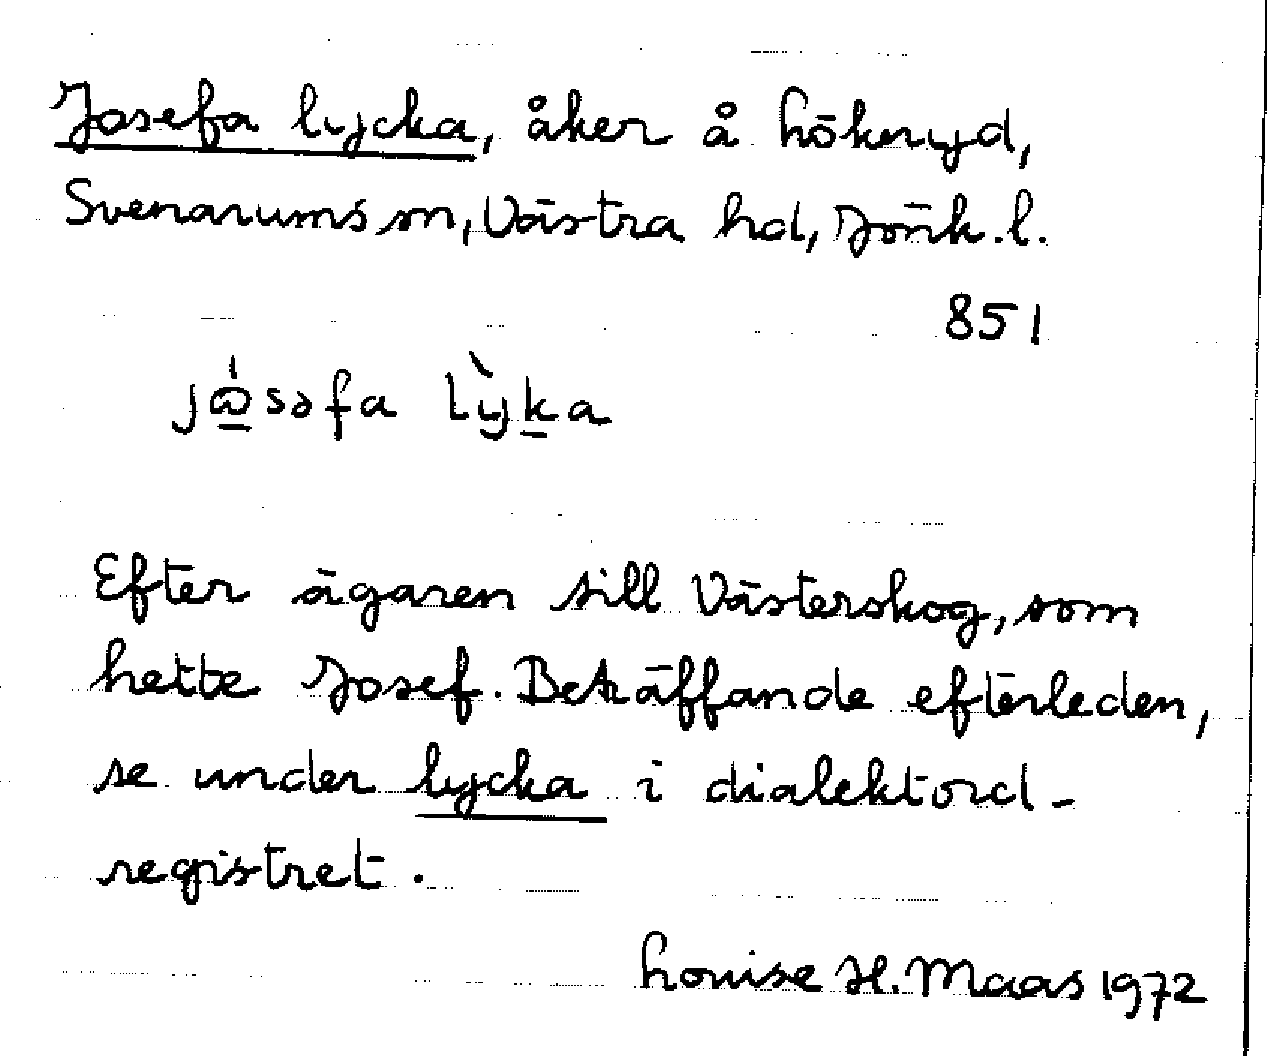 Josefa lycka, åker å Hökeryd,
Svenarums sn, Västra hd, Jönk. l.
851
Efter ägaren till Västerskog, som
hette Josef. Beträffande efterleden,
se under lycka i dialektord-
registret.
Louise H. Maas 1972